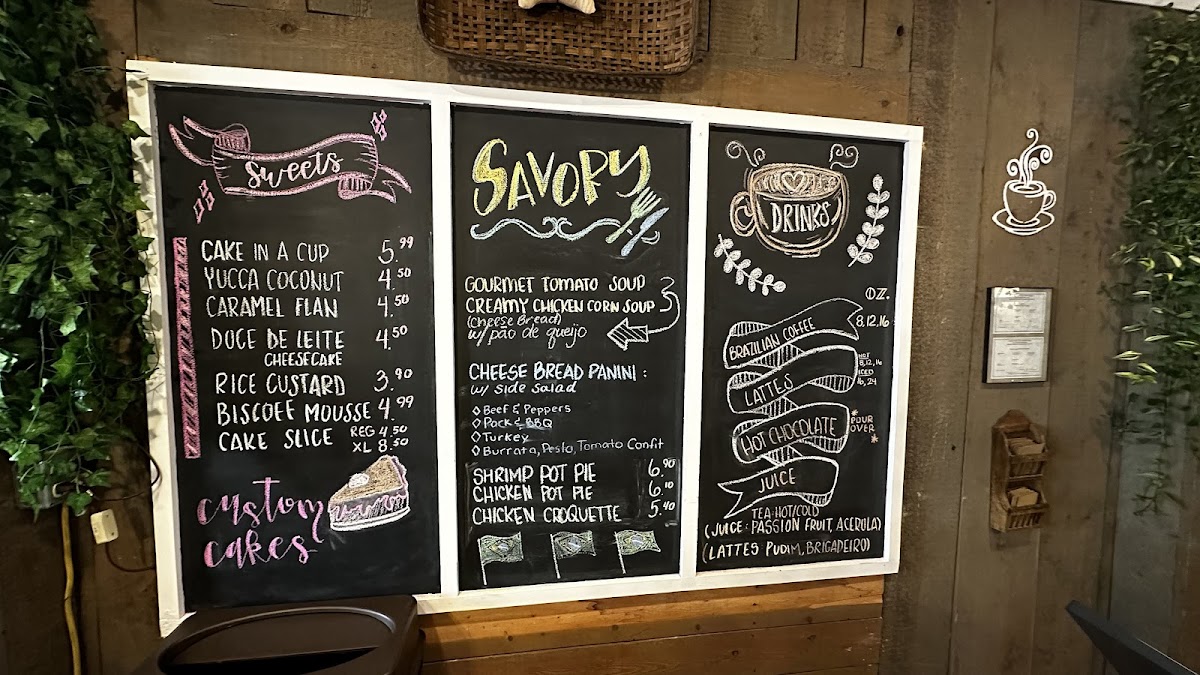 Sweets
CAKE IN A CUP 5.99
YUCCA COCONUT 4.50
CARAMEL FLAN 4.50
DOCE DE LEITE 4.50
CHEESECAKE
RICE CUSTARD 3.90
BISCOFF MOUSSE 4.99
CAKE SLICE REG 4.50
XL 8.50
Custom
Cakes
SAVORY
GOURMET TOMATO SOUP
CREAMY CHICKEN CORN SOUP
(Cheese Bread)
w/ pão de queijo
CHEESE BREAD PANINI :
w/ side Salad
Beef & Peppers
Pork & BBQ
Turkey
Burrata, Pesto, Tomato Confit
SHRIMP POT PIE 6.90
CHICKEN POT PIE 6.10
CHICKEN CROQUETTE 5.40
DRINKS
OZ.
BRAZILIAN COFFEE 8.12.16
LATTES HOT 8.12.16
ICED 16, 24
HOT CHOCOLATE *POUR OVER*
JUICE
TEA: HOT/COLD
(JUICE: PASSION FRUIT, ACEROLA)
(LATTES PUDIM, BRIGADEIRO)